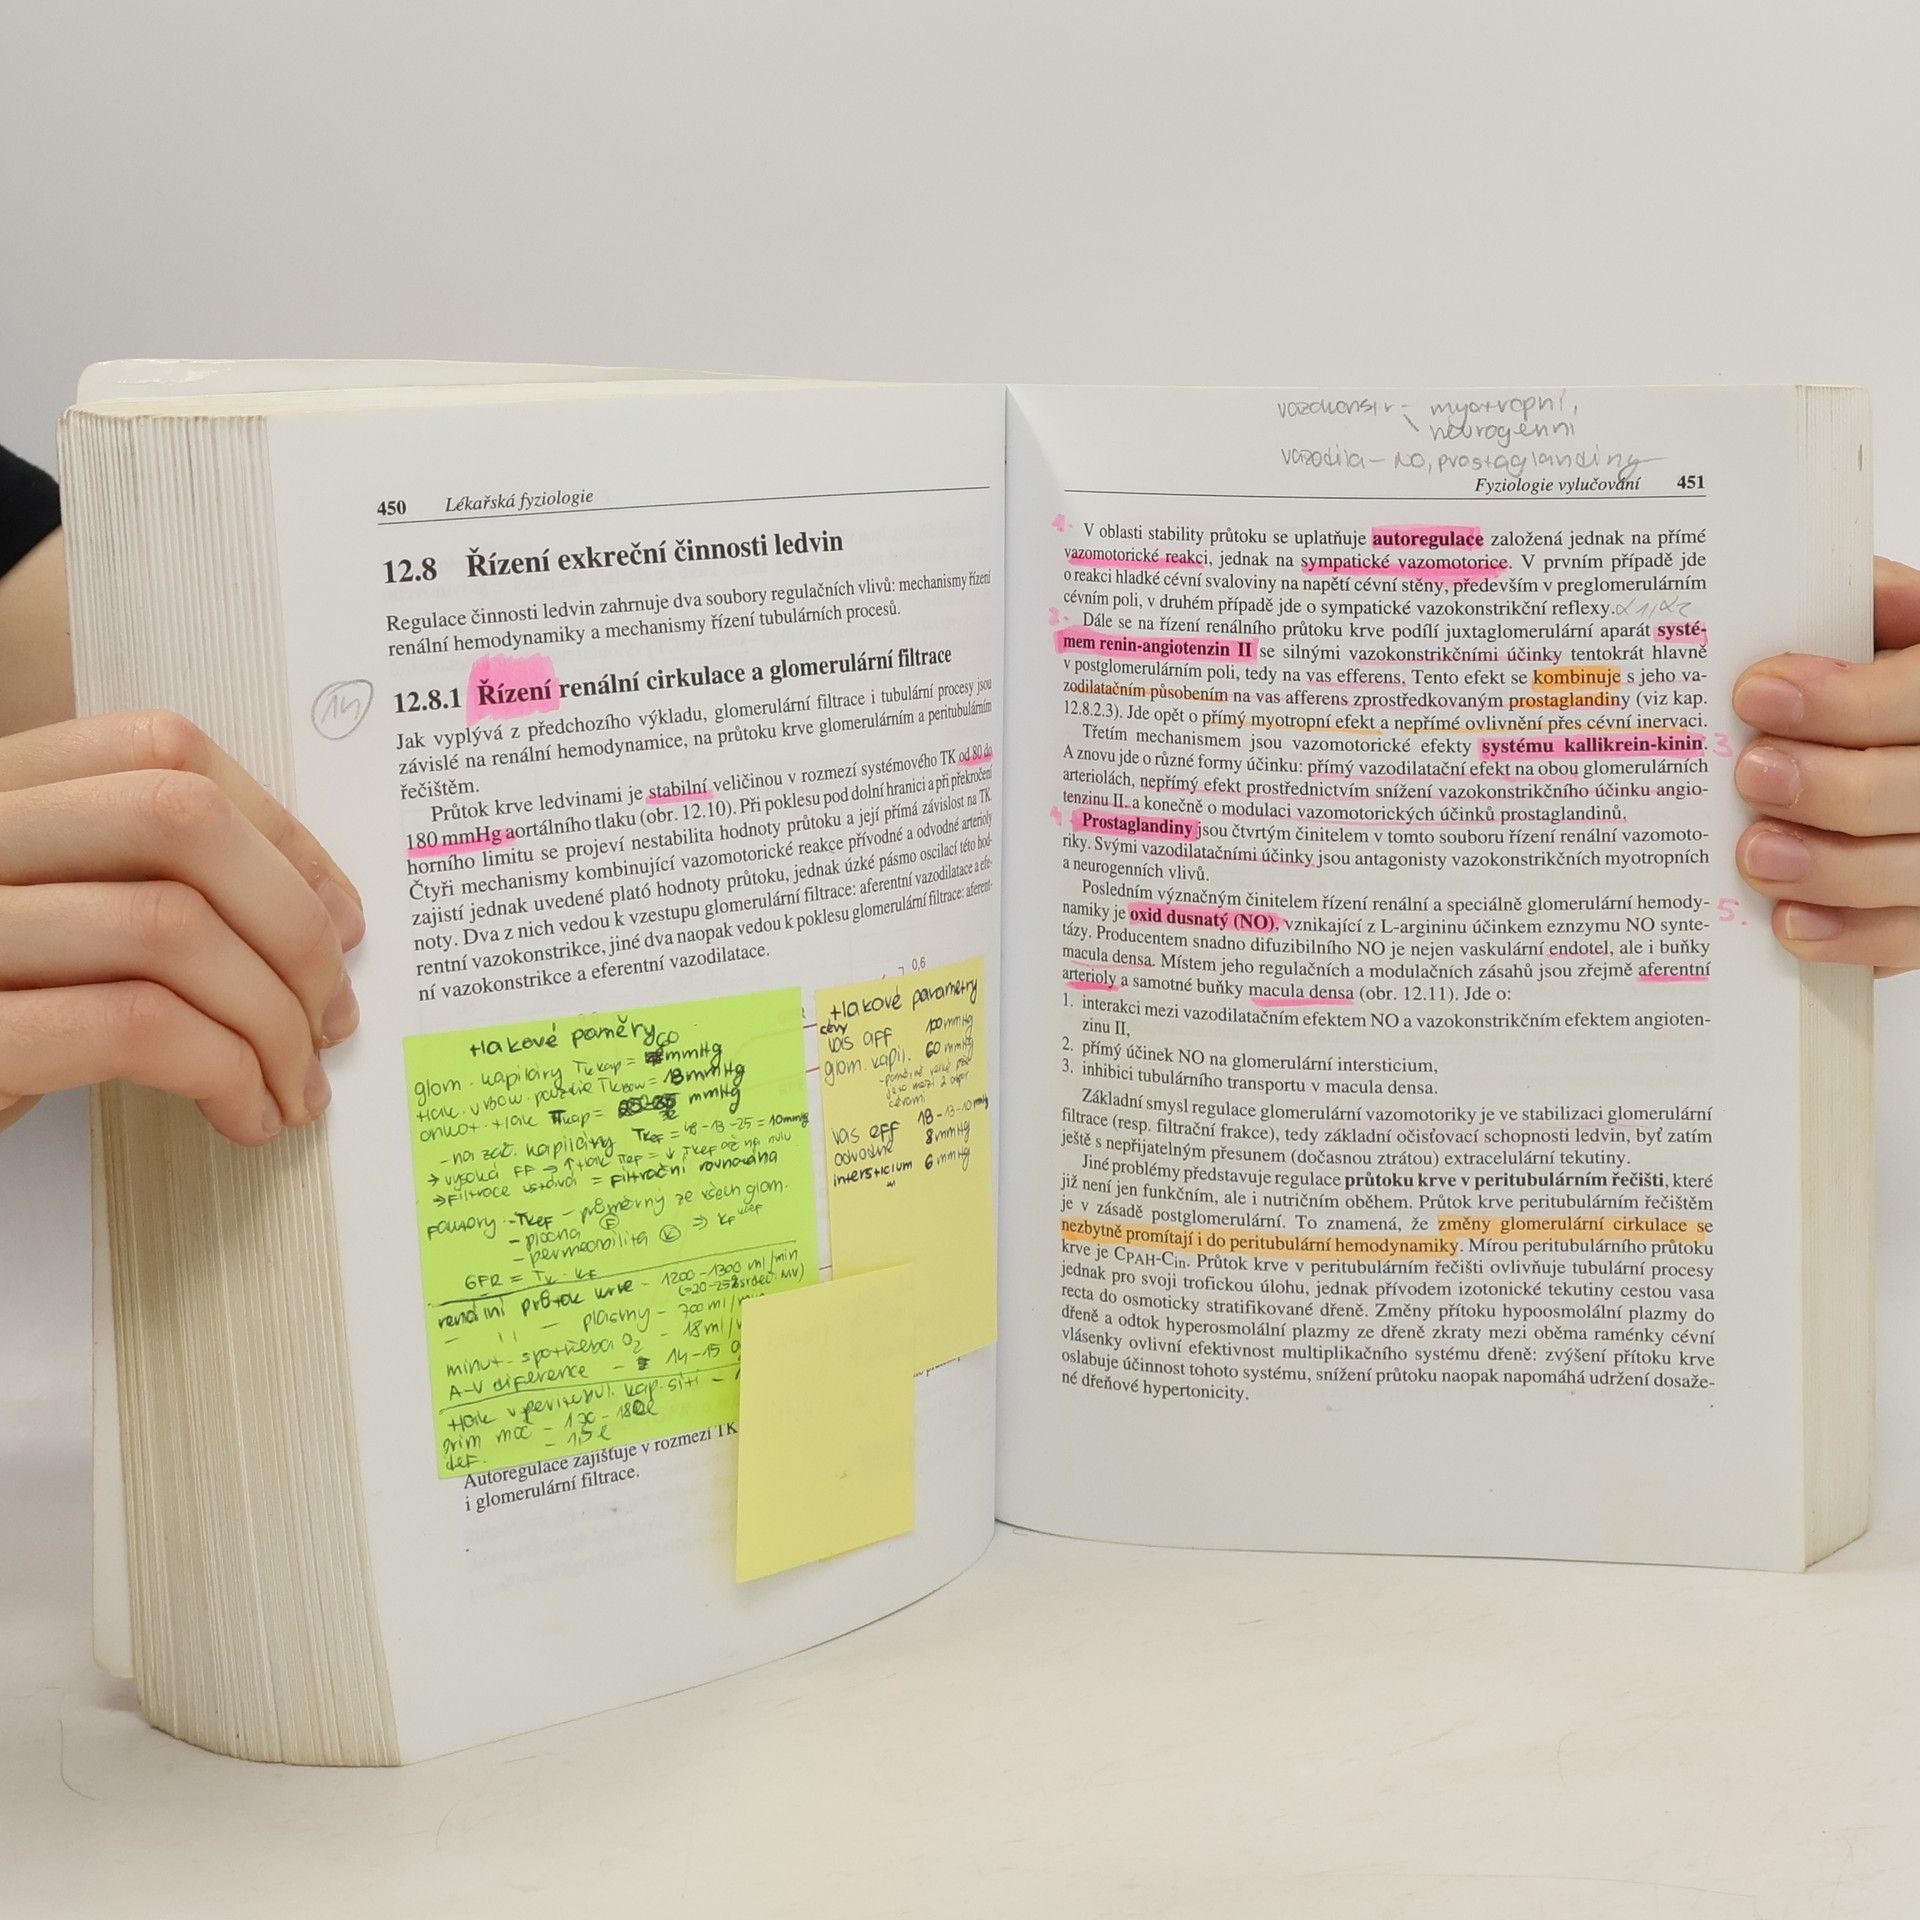 450 Lékařská fyziologie
12.8 Řízení exkreční činnosti ledvin
Regulace činnosti ledvin zahrnuje dva soubory regulačních vlivů: mechanismy řízení
renální hemodynamiky a mechanismy řízení tubulárních procesů.
14
12.8.1 Řízení renální cirkulace a glomerulární filtrace
Jak vyplývá z předchozího výkladu, glomerulární filtrace i tubulární procesy jsou
závislé na renální hemodynamice, na průtoku krve glomerulárním a peritubulárním
řečištěm.
Průtok krve ledvinami je stabilní veličinou v rozmezí systémového TK od 80 do
180 mmHg aortálního tlaku (obr. 12.10). Při poklesu pod dolní hranici a při překročení
horního limitu se projeví nestabilita hodnoty průtoku a její přímá závislost na TK.
Čtyři mechanismy kombinující vazomotorické reakce přívodné a odvodné arterioly
zajistí jednak uvedené plató hodnoty průtoku, jednak úzké pásmo oscilací této hod-
noty. Dva z nich vedou k vzestupu glomerulární filtrace: aferentní vazodilatace a efe-
rentní vazokonstrikce, jiné dva naopak vedou k poklesu glomerulární filtrace: aferent-
ní vazokonstrikce a eferentní vazodilatace.
0,6
tlakové poměry
glom. kapiláry = mmHg
= 18 mmHg
onkot. tlak = mmHg
- na zač. kapiláry = 10 mmHg
→ vysoká FF →
= filtrační rovnováha
Faktory: - průměrný ze všech glom.
- plocha
- permeabilita
GFR =
renální průtok krve - 1200-1300 ml/min
plasmy - 700 ml/
minut. spotřeba O2 - 18 ml/
A-V diference - 14-15
prim moč - 170-180 l
def. - 1,5 l
tlakové parametry
cévy
vas aff 100 mmHg
glom. kapil. 60 mmHg
vas eff 18-13-10 mmHg
odvodné 8 mmHg
intersticium 6 mmHg
Autoregulace zajišťuje v rozmezí TK
i glomerulární filtrace.
vazokonstr - myotropní,
neurogenní
vazodila - NO, prostaglandiny
Fyziologie vylučování 451
1. V oblasti stability průtoku se uplatňuje autoregulace založená jednak na přímé
vazomotorické reakci, jednak na sympatické vazomotorice. V prvním případě jde
o reakci hladké cévní svaloviny na napětí cévní stěny, především v preglomerulárním
cévním poli, v druhém případě jde o sympatické vazokonstrikční reflexy. α1, α2
2. Dále se na řízení renálního průtoku krve podílí juxtaglomerulární aparát systé-
mem renin-angiotenzin II se silnými vazokonstrikčními účinky tentokrát hlavně
v postglomerulárním poli, tedy na vas efferens. Tento efekt se kombinuje s jeho va-
zodilatačním působením na vas afferens zprostředkovaným prostaglandiny (viz kap.
12.8.2.3). Jde opět o přímý myotropní efekt a nepřímé ovlivnění přes cévní inervaci.
Třetím mechanismem jsou vazomotorické efekty systému kallikrein-kinin. 3
A znovu jde o různé formy účinku: přímý vazodilatační efekt na obou glomerulárních
arteriolách, nepřímý efekt prostřednictvím snížení vazokonstrikčního účinku angio-
tenzinu II. a konečně o modulaci vazomotorických účinků prostaglandinů.
4. Prostaglandiny jsou čtvrtým činitelem v tomto souboru řízení renální vazomoto-
riky. Svými vazodilatačními účinky jsou antagonisty vazokonstrikčních myotropních
a neurogenních vlivů.
Posledním význačným činitelem řízení renální a speciálně glomerulární hemody-
namiky je oxid dusnatý (NO), vznikající z L-argininu účinkem eznzymu NO synte- 5.
tázy. Producentem snadno difuzibilního NO je nejen vaskulární endotel, ale i buňky
macula densa. Místem jeho regulačních a modulačních zásahů jsou zřejmě aferentní
arterioly a samotné buňky macula densa (obr. 12.11). Jde o:
1. interakci mezi vazodilatačním efektem NO a vazokonstrikčním efektem angioten-
zinu II,
2. přímý účinek NO na glomerulární intersticium,
3. inhibici tubulárního transportu v macula densa.
Základní smysl regulace glomerulární vazomotoriky je ve stabilizaci glomerulární
filtrace (resp. filtrační frakce), tedy základní očisťovací schopnosti ledvin, byť zatím
ještě s nepřijatelným přesunem (dočasnou ztrátou) extracelulární tekutiny.
Jiné problémy představuje regulace průtoku krve v peritubulárním řečišti, které
již není jen funkčním, ale i nutričním oběhem. Průtok krve peritubulárním řečištěm
je v zásadě postglomerulární. To znamená, že změny glomerulární cirkulace se
nezbytně promítají i do peritubulární hemodynamiky. Mírou peritubulárního průtoku
krve je CPAH-Cin. Průtok krve v peritubulárním řečišti ovlivňuje tubulární procesy
jednak pro svoji trofickou úlohu, jednak přívodem izotonické tekutiny cestou vasa
recta do osmoticky stratifikované dřeně. Změny přítoku hypoosmolální plazmy do
dřeně a odtok hyperosmolální plazmy ze dřeně zkraty mezi oběma raménky cévní
vlásenky ovlivní efektivnost multiplikačního systému dřeně: zvýšení přítoku krve
oslabuje účinnost tohoto systému, snížení průtoku naopak napomáhá udržení dosaže-
né dřeňové hypertonicity.